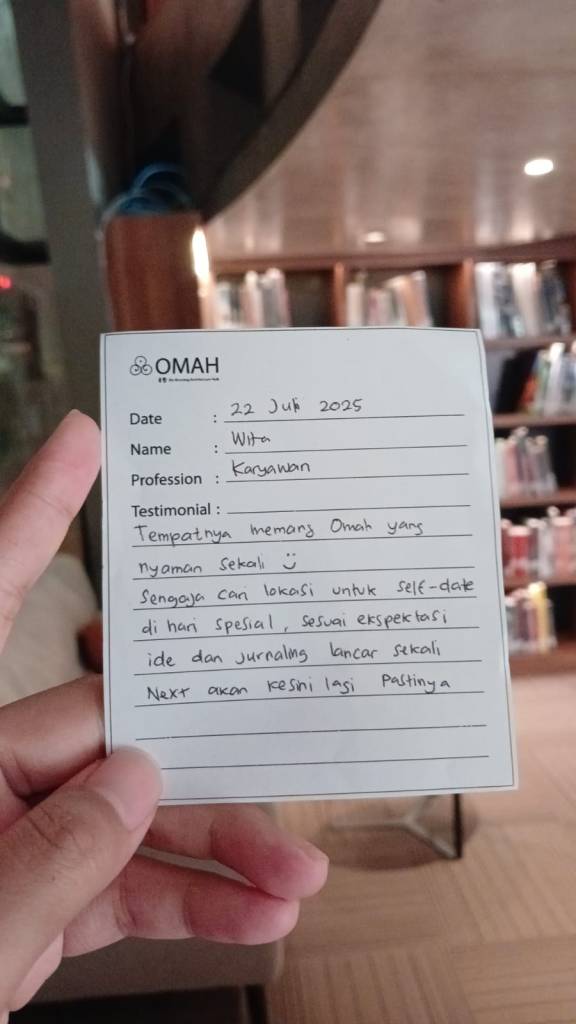 OMAH
Date : 22 Juli 2025
Name : Wita
Profession : Karyawan
Testimonial :
Tempatnya memang Omah yang
nyaman sekali :)
Sengaja cari lokasi untuk self-date
di hari spesial, sesuai ekspektasi
ide dan jurnaling lancar sekali
Next akan kesini lagi pastinya